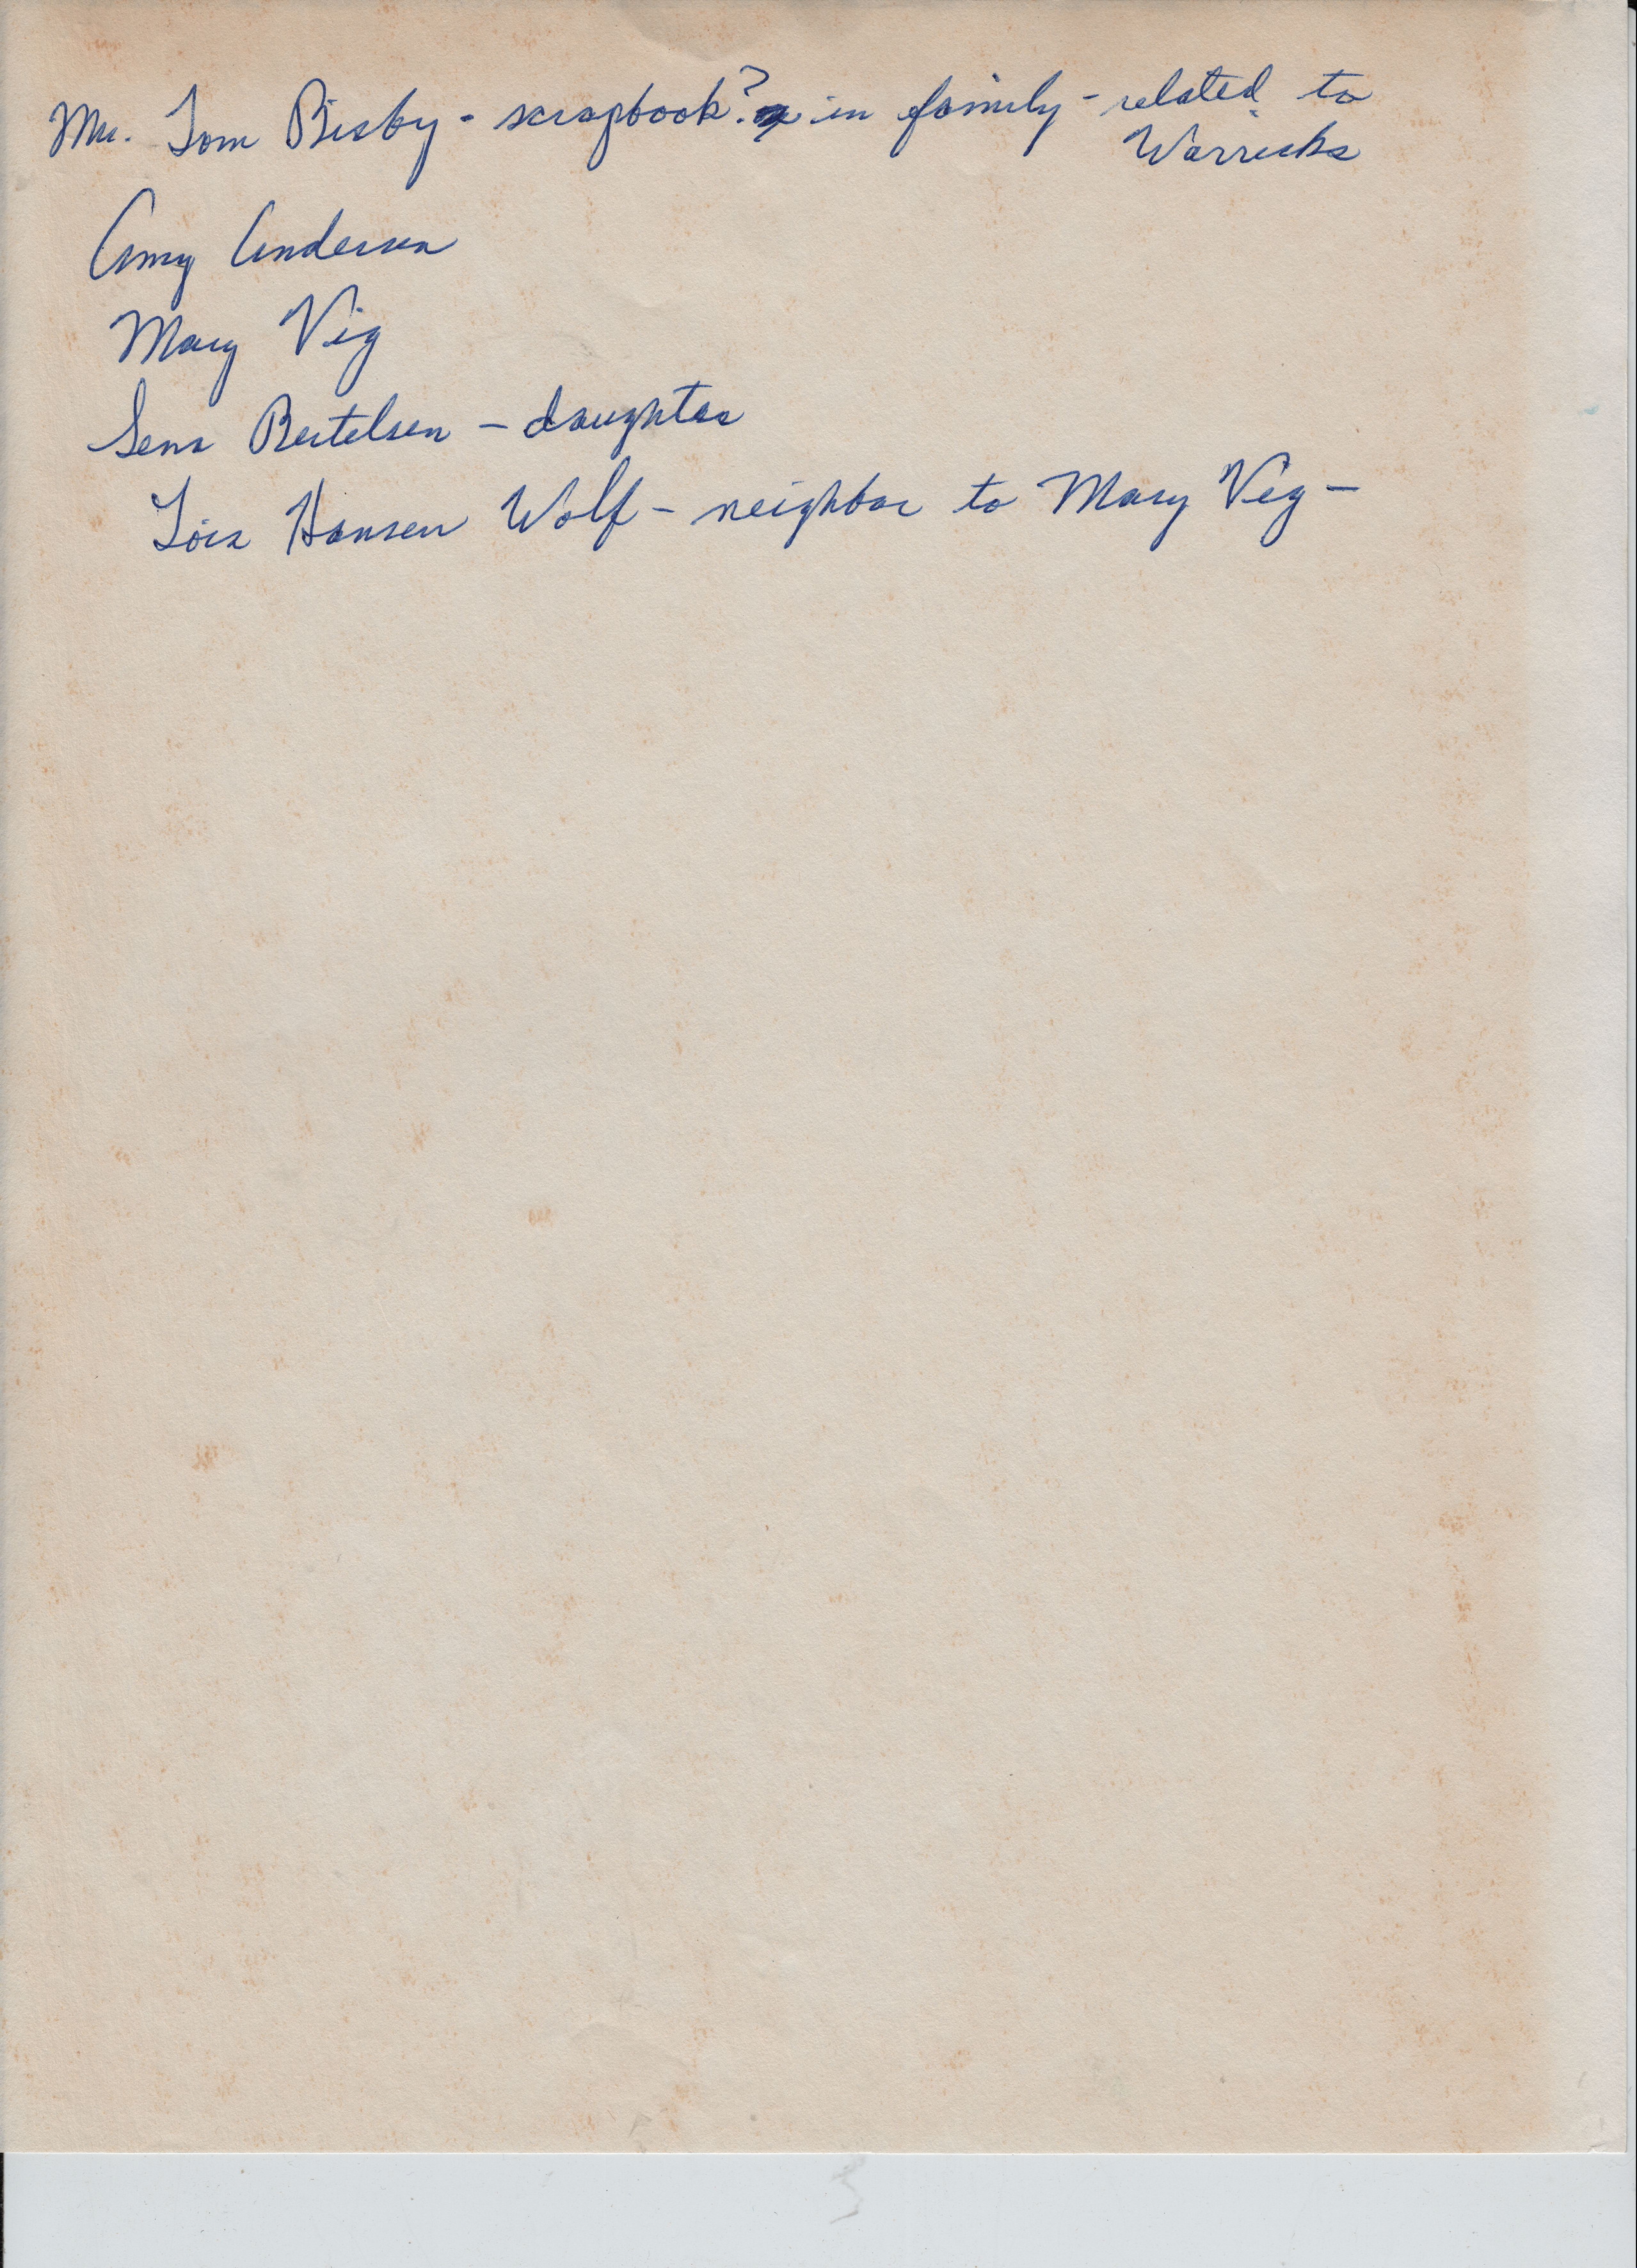 Mr. Tom Bisby - scrapbook? in family - related to
Warricks
Amy Andersen
Mary Vig
Sena Bertelsen - daughter
Lois Hansen Wolf - neighbor to Mary Vig -